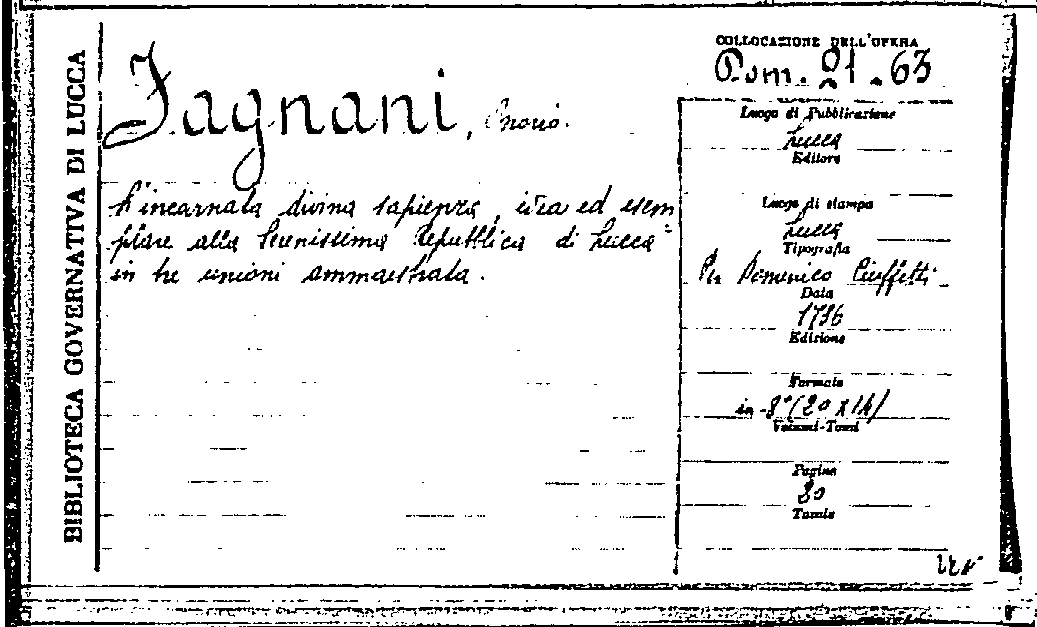 BIBLIOTECA GOVERNATIVA DI LUCCA
Fagnani,
L'incarnata divina sapienza, idea ed esem
plare alla Serenissima Repubblica di Lucca
in tre unioni ammaestrata.
COLLOCAZIONE DELL'OPERA
Pom. 21.63
Luogo di Pubblicazione
Lucca
Editore
Luogo di stampa
Lucca
Tipografia
Per Domenico Ciuffetti
Data
1716
Edizione
Formato
in-8° (20 x 14)
Volumi-Tomi
Pagine
80
Tavole